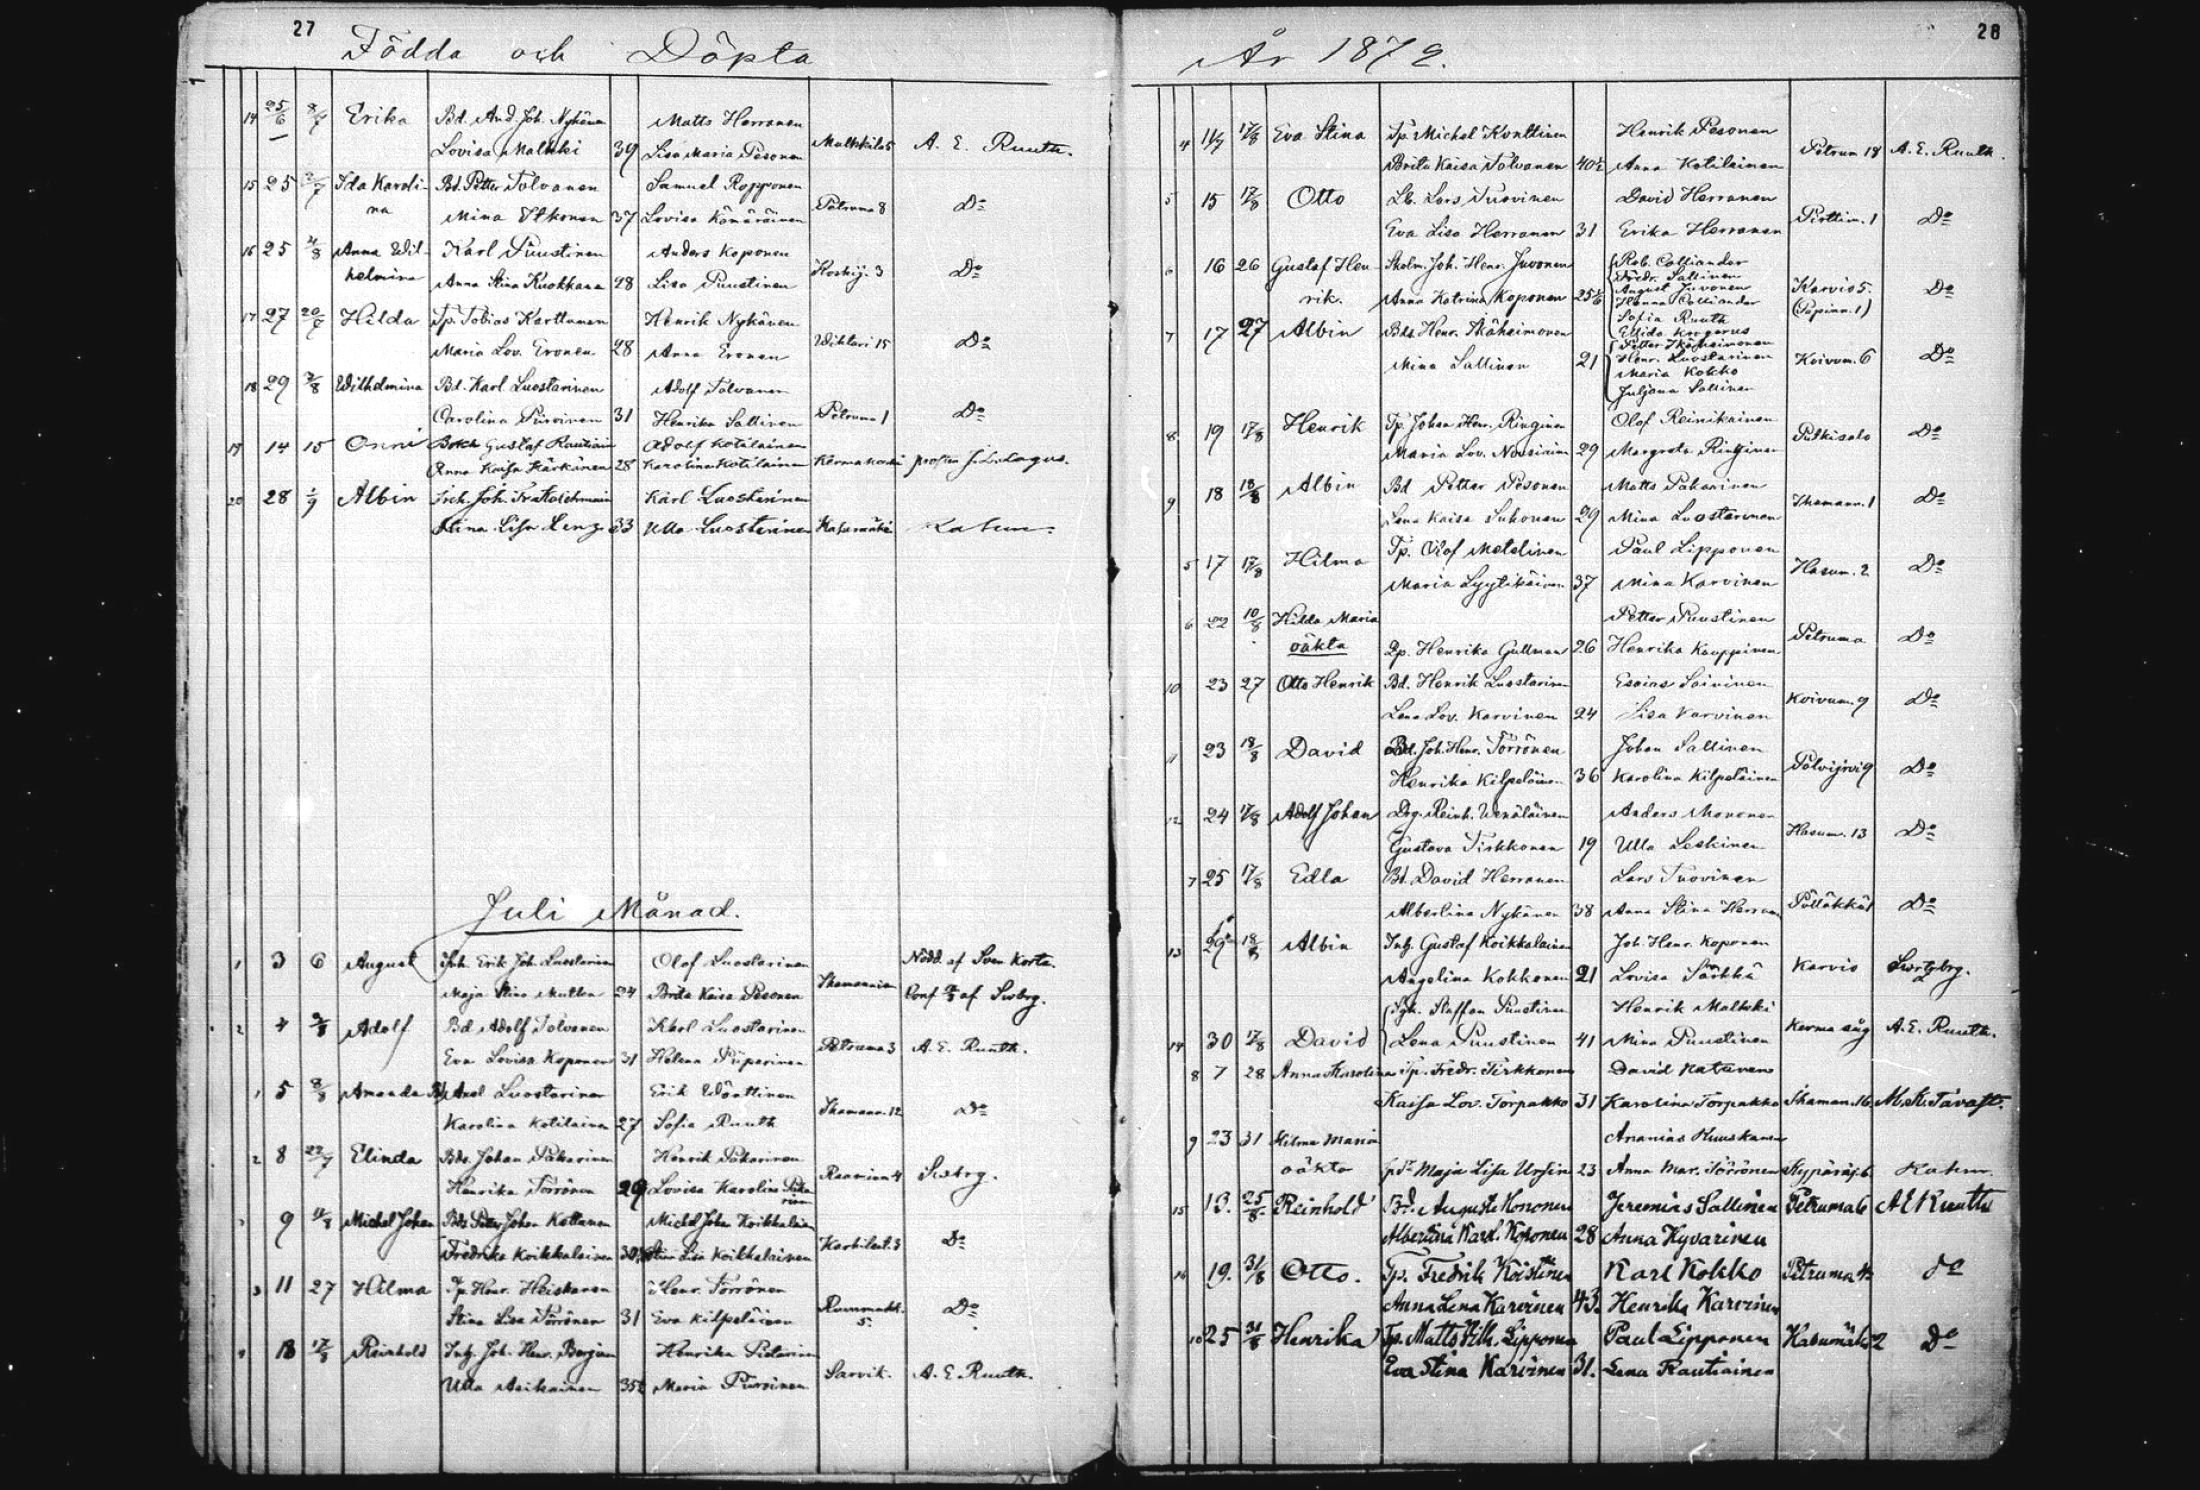 27
Födda och Döpta
14 25/6 8/7 Erika Bd. And. Joh. Nykänen Matts Herranen
Lovisa Malkki 39 Lisa Maria Pesonen Malkkila 5 A. E. Ruuth.
15 25 Ida Karoli- Bd. Petter Tolvanen Samuel Ropponen
na Mina Itkonen 37 Lovisa Kämäräinen Petruma 8 Do
16 25 4/8 Anna Wil- Karl Puustinen Anders Koponen
helmina Anna Stina Kuokkana 28 Lisa Puustinen Koskij. 3 Do
17 27 20/7 Hilda Tp. Tobias Karttunen Henrik Nykänen
Maria Lov. Eronen 28 Anna Eronen Wihtari 15 Do
18 29 3/8 Wilhelmina Bd. Karl Luostarinen Adolf Tolvanen
Carolina Piirvinen 31 Henrika Sallinen Petruma 1 Do
19 14 15 Onni Gustaf Rautiain Adolf Kotilainen
Anna Kaisa Kärkänen 28 Karolina Kotilainen Kermakoski prosten J. L. Lagus.
20 28 1/9 Albin Joh. Karl Luostarinen
Stina Lisa Lenz 33 Ulla Luostarinen Kasurmäki
Juli Månad.
1 3 6 August Inh. Erik Joh. Luostarinen Olof Luostarinen Nödd. af Sven Korta.
Maja Stina Mutton 24 Brita Kaisa Pesonen Conf af Swbrg.
2 4 Adolf Bd Adolf Tolvanen Karl Luostarinen
Eva Lovisa Koponen 31 Helena Piiparinen Petruma 3 A. E. Ruuth.
1 5 8/8 Amanda Axel Luostarinen Erik Wänttinen
Karolina Kotilainen 27 Sofia Ruuth 12 Do
2 8 22/7 Elinda Bds. Johan Pakarinen Henrik Pakarinen
Henrika Törrönen 29 Lovisa Karolina Paka- Raanina 4 Swbrg.
rinen
3 9 11/8 Michel Johan Johan Kettunen Michel Johan Koikkalainen
Fredrika Koikkalainen Stina Lisa Koikkalainen 3 Do
3 11 27 Hilma Tp. Henr. Heiskanen Henr. Törrönen
Stina Lisa Törrönen 31 Eva Kilpeläinen 5. Do
4 18 17/8 Reinhold Inh. Joh. Henr. Henrika Pietarinen
Ulla Asikainen Maria Piirvinen Sarvik. A. E. Ruuth.
28
År 1879.
4 17/8 Eva Stina Tp. Michel Konttinen Henrik Pesonen
Brita Kaisa Tolvanen 40½ Anna Kotilainen Petrum 18 A. E. Ruuth.
5 15 17/8 Otto Lb. Lars Tuovinen David Herranen
Eva Lisa Herranen 31 Erika Herranen Pirttim. 1 Do
6 16 26 Gustaf Hen- Joh. Henr. Juvonen Rob. Colliander
Fredr. Sallinen
rik. Anna Katrina Koponen August Juvonen Karvio 5. Do
Hanna Colliander (Papinn. 1)
Sofia Ruuth
7 17 27 Albin Bds. Henr. Ikäheimonen Ellida Krogerus
Petter Ikäheimonen
Mina Sallinen 21 Henr. Luostarinen Koivum. 6 Do
Maria Kokko
Juljana Sallinen
8 19 17/8 Henrik Tp. Johan Henr. Ringinen Olof Reinikainen
Maria Lov. Nousiainen 29 Margreta Ringinen Putkisalo Do
9 18 18/8 Albin Bd Petter Pesonen Matts Pakarinen
Lena Kaisa Suhonen 29 Mina Luostarinen 1 Do
5 17 17/8 Hilma Tp. Olof Matilinen Paul Lipponen
Maria Lyytikäinen 37 Mina Karvinen Hasum. 2 Do
6 22 10/8 Hilda Maria Petter Puustinen
oäkta Pp. Henrika Gullman 26 Henrika Kauppinen Petruma Do
10 23 27 Otto Henrik Bd. Henrik Luostarinen Esaias Soininen
Lena Lov. Karvinen 24 Lisa Karvinen Koivum. 9 Do
11 23 18/8 David Bd. Joh. Henr. Törrönen Johan Sallinen
Henrika Kilpeläinen 36 Karolina Kilpeläinen Pölvijrvi 9 Do
12 24 17/8 Adolf Johan Drg. Reinh. Wenäläinen Anders Mononen
Gustava Tirkkonen 19 Ulla Leskinen Hasum. 13 Do
7 25 17/8 Edla Bd. David Herranen Lars Tuovinen
Albertina Nykänen 38 Anna Stina Herranen Pölläkkä 1 Do
13 29 18/8 Albin Inh. Gustaf Koikkalainen Joh. Henr. Koponen
Angelina Kokkonen 21 Lovisa Särkkä Karvio Swrtzbrg.
Staffan Puustinen Henrik Malkki
14 30 17/8 David Lena Puustinen 41 Mina Puustinen Kerma såg A. E. Ruuth.
8 7 28 Anna Karolina Tp. Fredr. Tirkkonen David Natunen
Kaisa Lov. Torpakko 31 Karolina Torpakko 16 M. K. Tavast.
9 23 31 Hilma Maria Ananias Ruuskanen
oäkta Maja Lisa Ursin 23 Anna Mar. Törrönen Kypäräj. 6
15 13. 25/8 Reinhold Bd. August Mononen Jeremias Sallinen Petruma 6 A E Ruuth
Albertina Karol. Koponen 28 Anna Hyvärinen
16 19. 31/8 Otto. Tp. Fredrik Koistinen Karl Kokko Petruma 4 do
Anna Lena Karvinen 43. Henrika Karvinen
10 25 31/8 Henrika Tp. Matts Wilh. Lipponen Paul Lipponen Hasumäki 2 Do
Eva Stina Karvinen 31. Lena Rautiainen